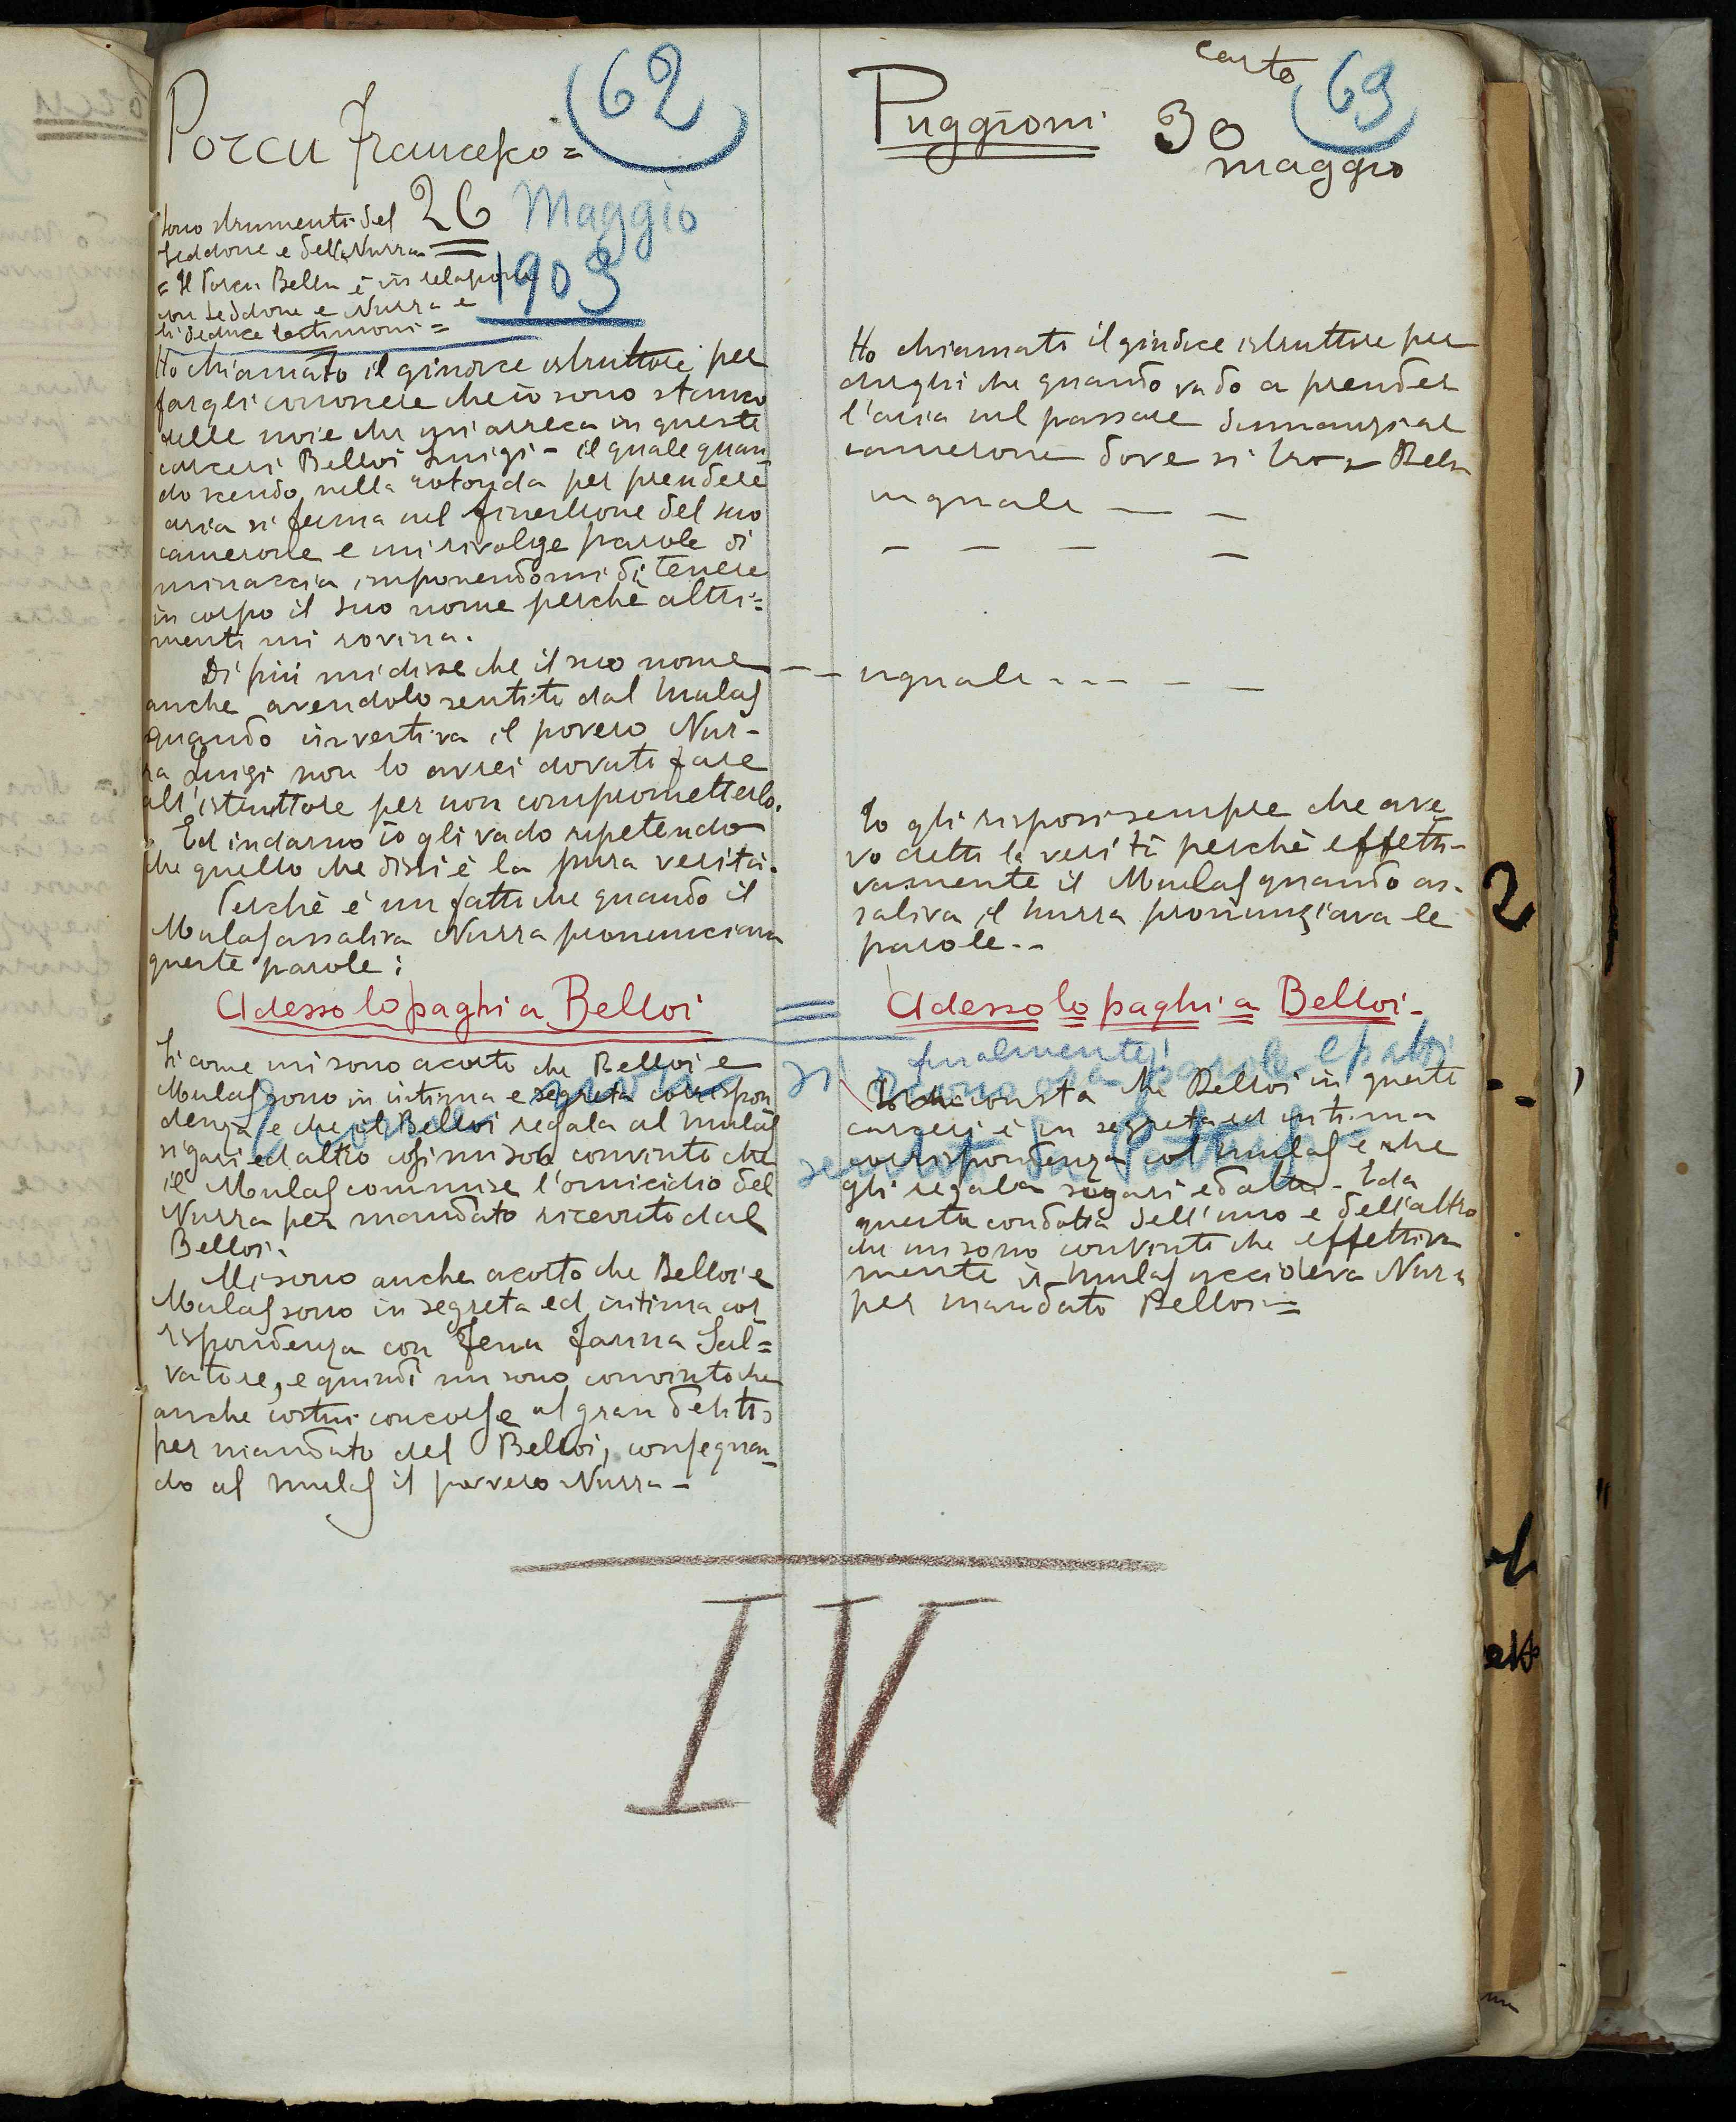 62
Porcu Francesco =
26 Maggio
1903
sono strumenti del
Seddone e della Nurra
= Il Porcu Bellu è in relazione
con Seddone e Nurra e
li seduce testimoni =
Ho chiamato il giudice istruttore per
fargli conoscere che io sono stanco
delle noie che mi arreca in queste
carceri Belloi Luigi - il quale quan-
do scendo nella rotonda per prendere
aria si ferma nel finestrone del suo
camerone e mi rivolge parole di
minaccia imponendomi di tenere
in corpo il suo nome perchè altri=
menti mi rovina.
Di più mi disse che il suo nome
anche avendolo sentito dal Mulas
quando investiva il povero Nur-
ra Luigi non lo avrei dovuto fare
all'istruttore per non comprometterlo.
Ed indarno io gli vado ripetendo
che quello che dissi è la pura verità.
Perchè è un fatto che quando il
Mulas assaliva Nurra pronunciava
queste parole:
Adesso lo paghi a Belloi
Siccome mi sono acorto che Belloi e
Mulas sono in intima e segreta corrispon
denza e che il Belloi regala al Mulas
sigari ed altro così mi son convinto che
il Mulas commise l'omicidio del
Nurra per mandato ricevuto dal
Belloi.
Mi sono anche acorto che Belloi e
Mulas sono in segreta ed intima cor
rispondenza con Fenu Farina Sal=
vatore, e quindi mi sono convinto che
anche costui concorse al gran delitto
per mandato del Belloi, consegnan-
do al Mulas il povero Nurra -
carta 63
Puggioni 30
maggio
Ho chiamato il giudice istruttore per
dirgli che quando vado a prender
l'aria nel passare dinnanzi al
camerone dove si trova Belloi
uguale — —
— — — —
— — uguale - - - — —
Io gli risposi sempre che ave
vo detto la verità perchè effetti-
vamente il Mulas quando as-
saliva il Nurra pronunziava le
parole - -
= Adesso lo paghi a Belloi -
finalmente
consta che Belloi in queste
carceri è in segreta ed intima
corrispondenza col Mulas e che
gli regala sigari ed altro - E da
questa condotta dell'uno e dell'altro
che mi sono convinto che effettiva
mente il Mulas uccideva Nurra
per mandato Belloi =
IV
2